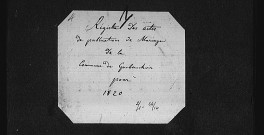 Registre Des actes
de publication de Mariage
de la
Commune de
pour
1820